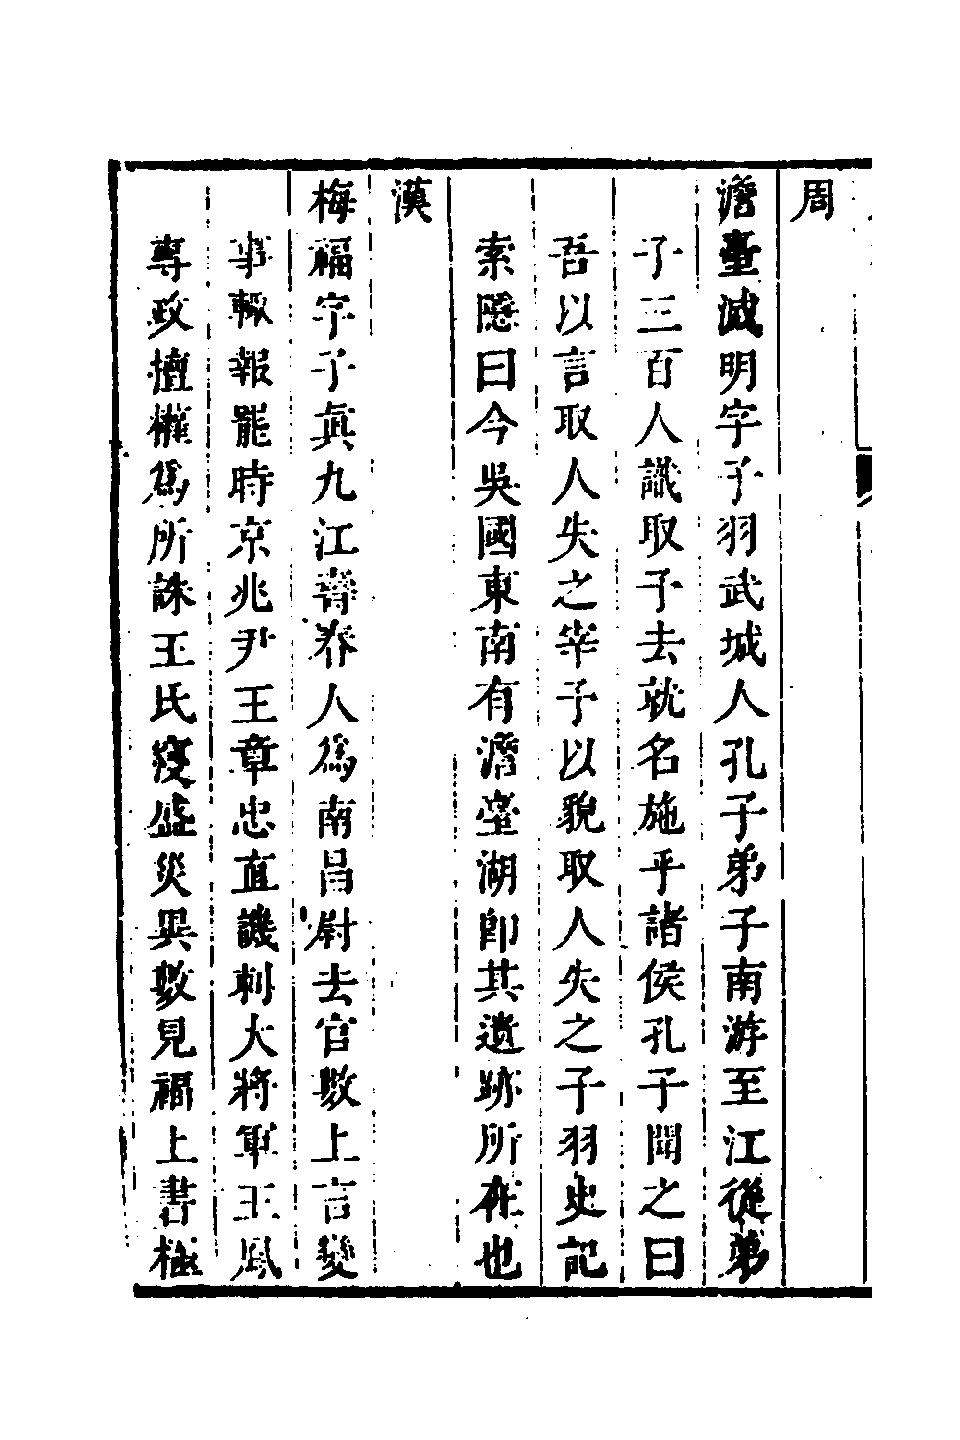 周
澹臺滅明字子羽武城人孔子弟子南游至江從弟
子三百人識取予去就名施乎諸侯孔子聞之曰
吾以言取人失之宰予以貌取人失之子羽史記
索隱曰今吳國東南有澹臺湖卽其遺跡所在也
漢
梅福字子眞九江壽春人爲南昌尉去官數上言變
事輒報罷時京兆尹王章忠直譏刺大將軍王鳳
專政擅權爲所誅王氏寖盛災異數見福上書極